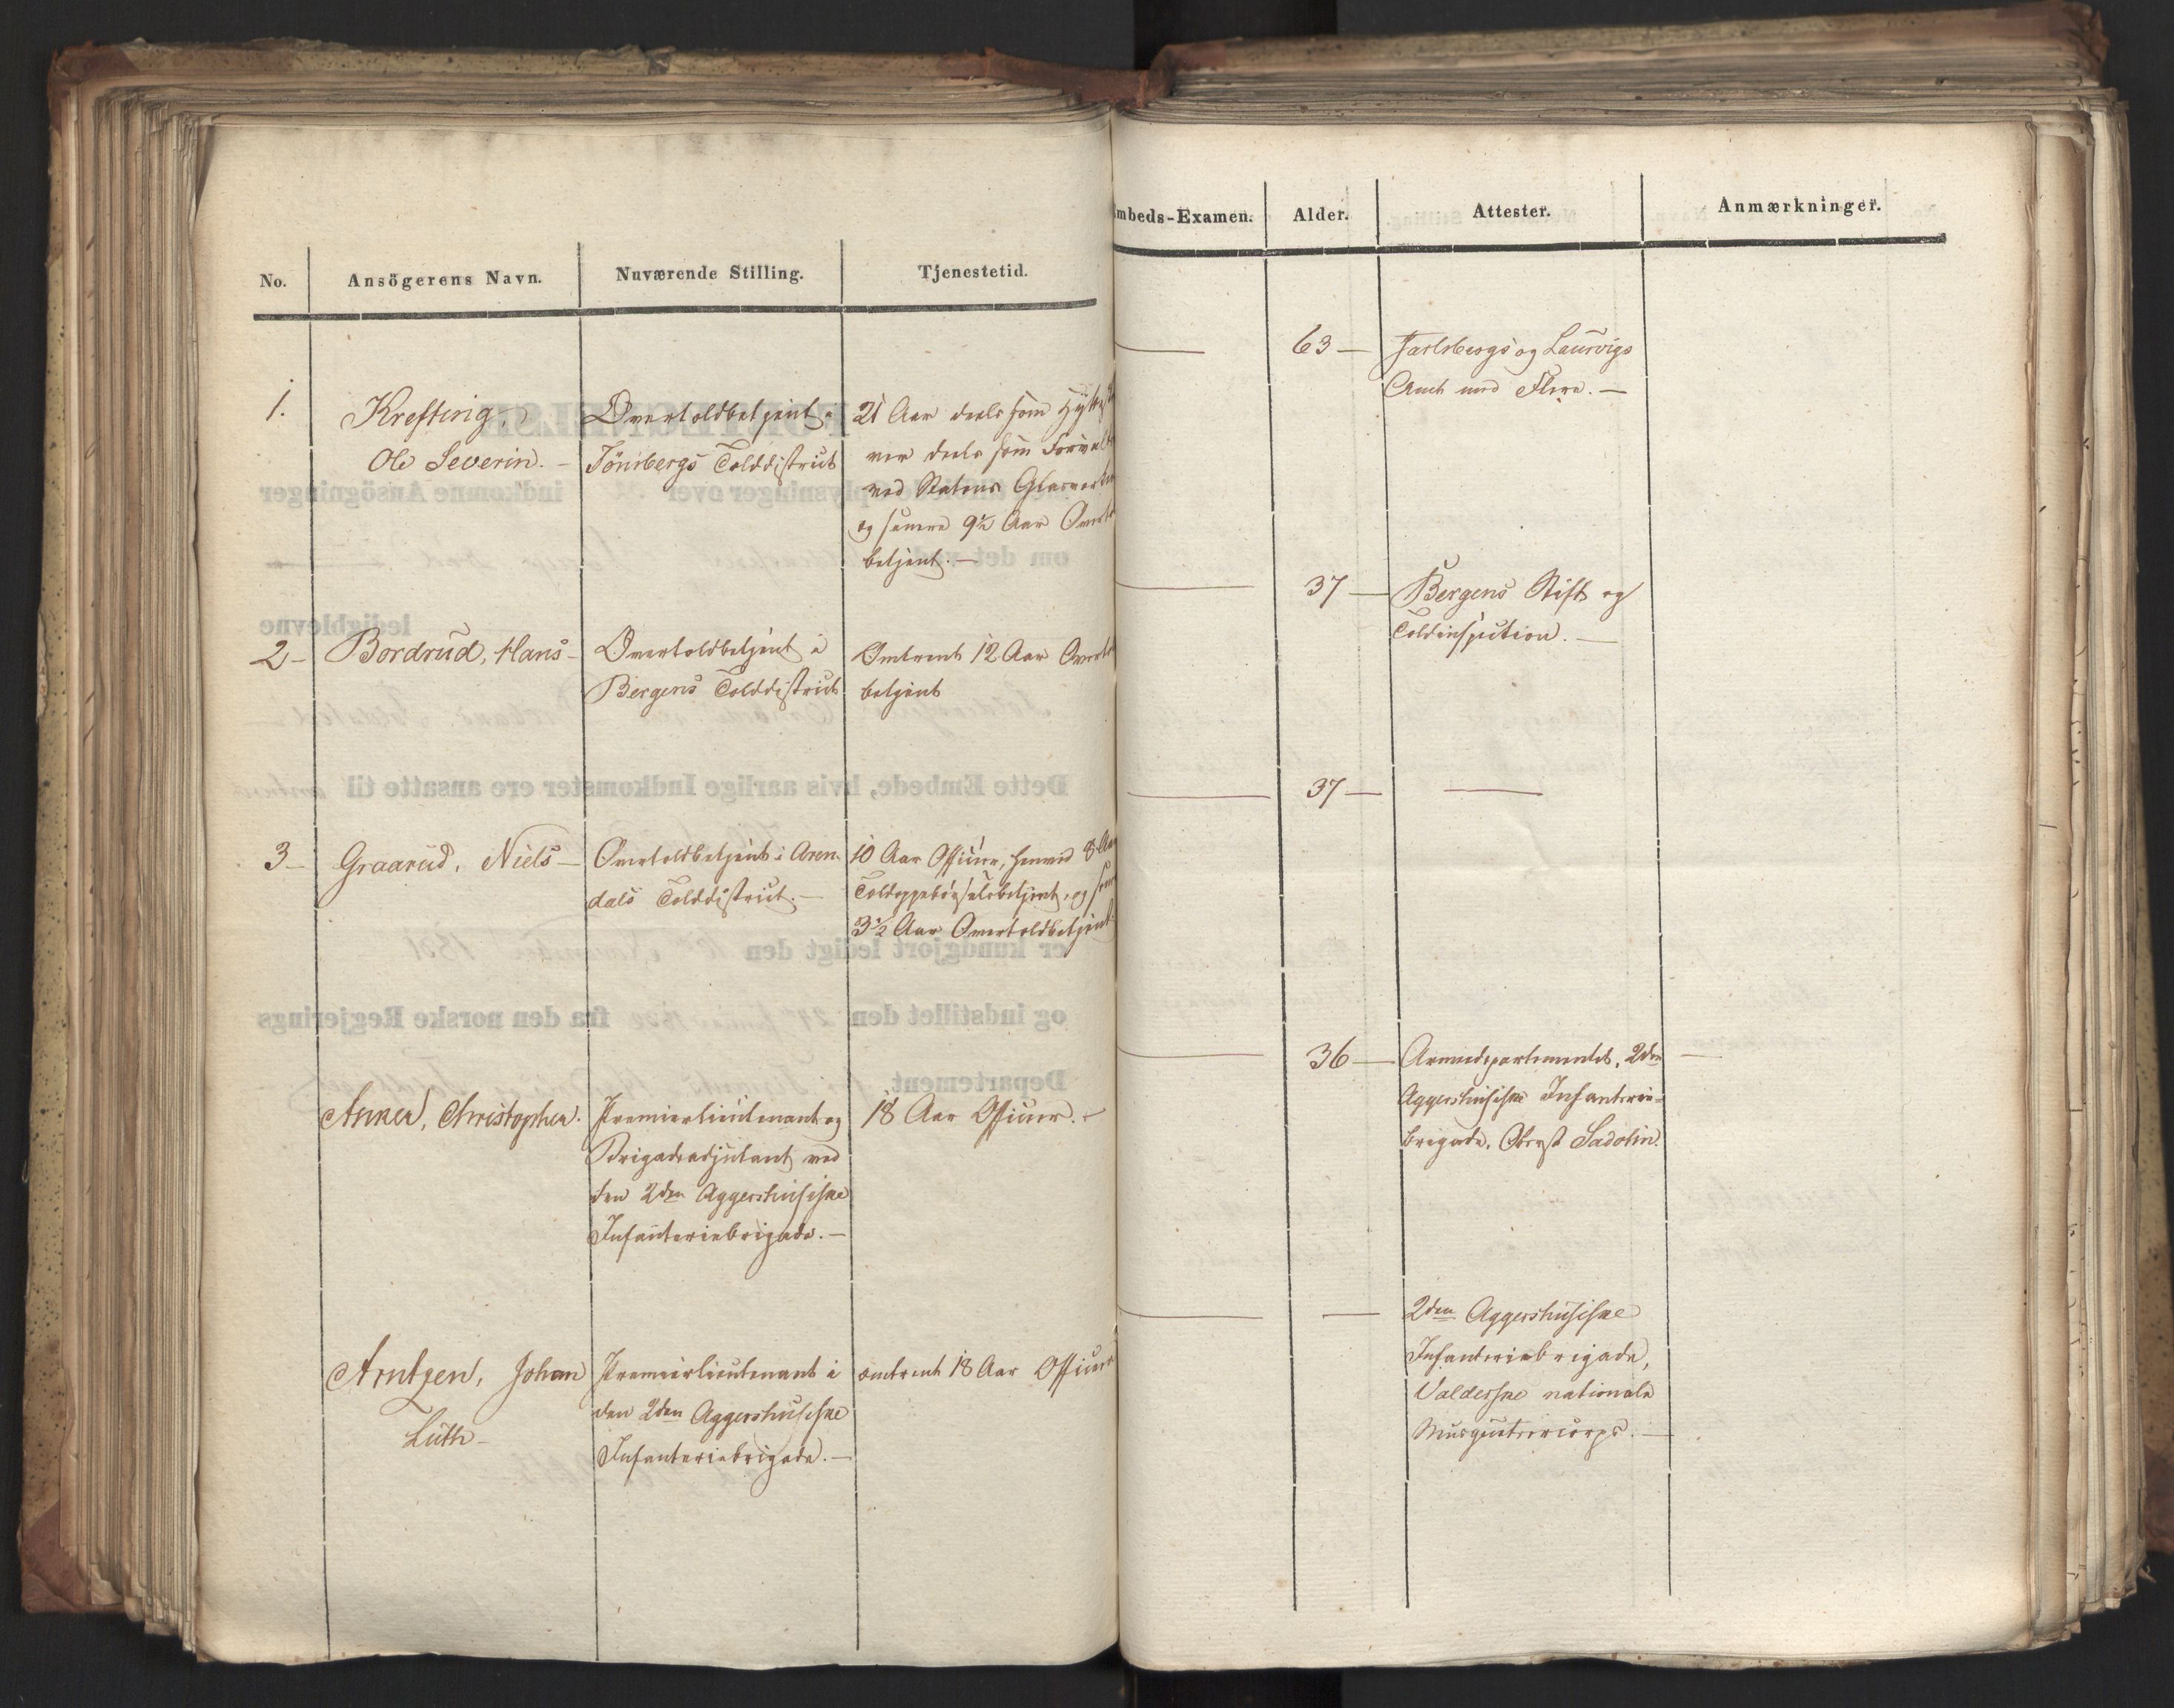 No.
Ansögerens Navn.
Nuværende Stilling.
Tjenestetid.
1.
Krefting,
Ole Severin. -
Overtoldbetjent i
Tönsbergs Tolddistrict
21 Aar deels som Hytte
ver deels som Forval
ved Statens Glasværker
og senere 9½ Aar Overt
betjent. —
2 -
Bordrud, Hans -
Overtoldbetjent i
Bergens Tolddistrict
Omtrent 12 Aar Overt
betjent
3 -
Graarud, Niels -
Overtoldbetjent i Aren
dals Tolddistrict. —
10 Aar Officier, henved 8 Aar
Toldoppebörselsbetjent, og
3½ Aar Overtoldbetjent
Anker, Christopher.
Premierlieutenant og
Brigadeadjutant ved
den 2den Aggershusiske
Infanteriebrigade. —
18 Aar Officier. -
Arntzen, Johan
Lüth -
Premierlieutenant i
den 2den Aggershusiske
Infanteriebrigade. —
omtrent 18 Aar Officier
mbeds-Examen.
Alder.
Attester.
Anmærkninger.
63 —
Jarlsbergs og Laurvigs
Amt med Flere. —
37 —
Bergens Stift og
Toldinspection. —
37 —
36 —
Armeedepartementet, 2den
Aggershusiske Infanterie-
brigade, Oberst Sadolin.
2den Aggershusiske
Infanteriebrigade,
Valderske nationale
Musqueteercorps. —